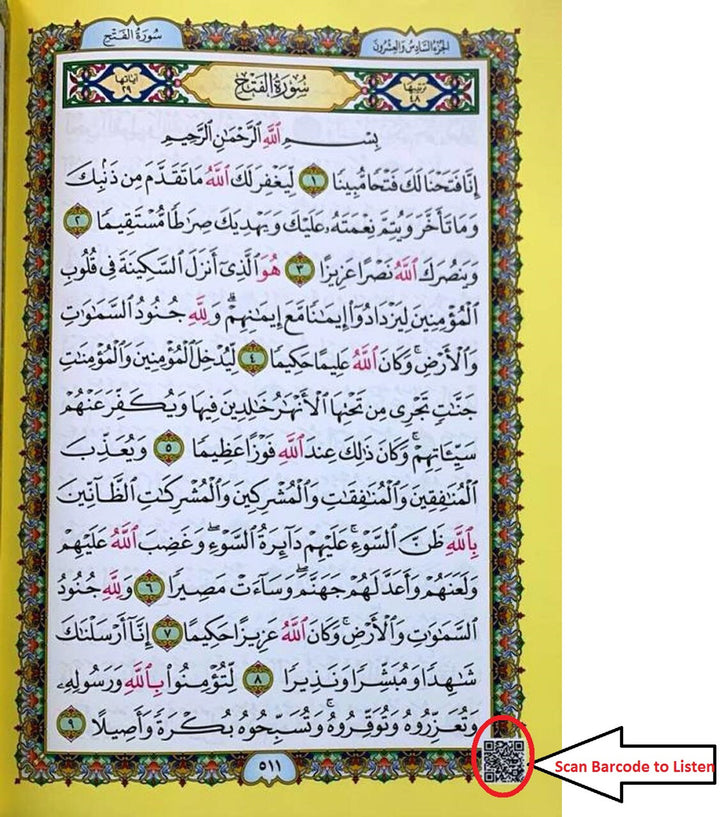 سُورَةُ الفَتْحِ
الجُزءُ السَّادِسُ وَالعِشْرُونَ
ترتيبها ٤٨
سُورَةُ الفَتْحِ
آياتها ٢٩
بِسْمِ اللَّهِ الرَّحْمَٰنِ الرَّحِيمِ
إِنَّا فَتَحْنَا لَكَ فَتْحًا مُّبِينًا ١ لِّيَغْفِرَ لَكَ اللَّهُ مَا تَقَدَّمَ مِن ذَنبِكَ
وَمَا تَأَخَّرَ وَيُتِمَّ نِعْمَتَهُۥ عَلَيْكَ وَيَهْدِيَكَ صِرَٰطًا مُّسْتَقِيمًا ٢
وَيَنصُرَكَ اللَّهُ نَصْرًا عَزِيزًا ٣ هُوَ الَّذِىٓ أَنزَلَ السَّكِينَةَ فِى قُلُوبِ
الْمُؤْمِنِينَ لِيَزْدَادُوٓا۟ إِيمَٰنًا مَّعَ إِيمَٰنِهِمْ ۗ وَلِلَّهِ جُنُودُ السَّمَٰوَٰتِ
وَالْأَرْضِ ۚ وَكَانَ اللَّهُ عَلِيمًا حَكِيمًا ٤ لِّيُدْخِلَ الْمُؤْمِنِينَ وَالْمُؤْمِنَٰتِ
جَنَّٰتٍ تَجْرِى مِن تَحْتِهَا الْأَنْهَٰرُ خَٰلِدِينَ فِيهَا وَيُكَفِّرَ عَنْهُمْ
سَيِّـَٔاتِهِمْ ۚ وَكَانَ ذَٰلِكَ عِندَ اللَّهِ فَوْزًا عَظِيمًا ٥ وَيُعَذِّبَ
الْمُنَٰفِقِينَ وَالْمُنَٰفِقَٰتِ وَالْمُشْرِكِينَ وَالْمُشْرِكَٰتِ الظَّآنِّينَ
بِاللَّهِ ظَنَّ السَّوْءِ ۚ عَلَيْهِمْ دَآئِرَةُ السَّوْءِ ۖ وَغَضِبَ اللَّهُ عَلَيْهِمْ
وَلَعَنَهُمْ وَأَعَدَّ لَهُمْ جَهَنَّمَ ۖ وَسَآءَتْ مَصِيرًا ٦ وَلِلَّهِ جُنُودُ
السَّمَٰوَٰتِ وَالْأَرْضِ ۚ وَكَانَ اللَّهُ عَزِيزًا حَكِيمًا ٧ إِنَّآ أَرْسَلْنَٰكَ
شَٰهِدًا وَمُبَشِّرًا وَنَذِيرًا ٨ لِّتُؤْمِنُوا۟ بِاللَّهِ وَرَسُولِهِۦ
وَتُعَزِّرُوهُ وَتُوَقِّرُوهُ ۚ وَتُسَبِّحُوهُ بُكْرَةً وَأَصِيلًا ٩
٥١١
Scan Barcode to Listen